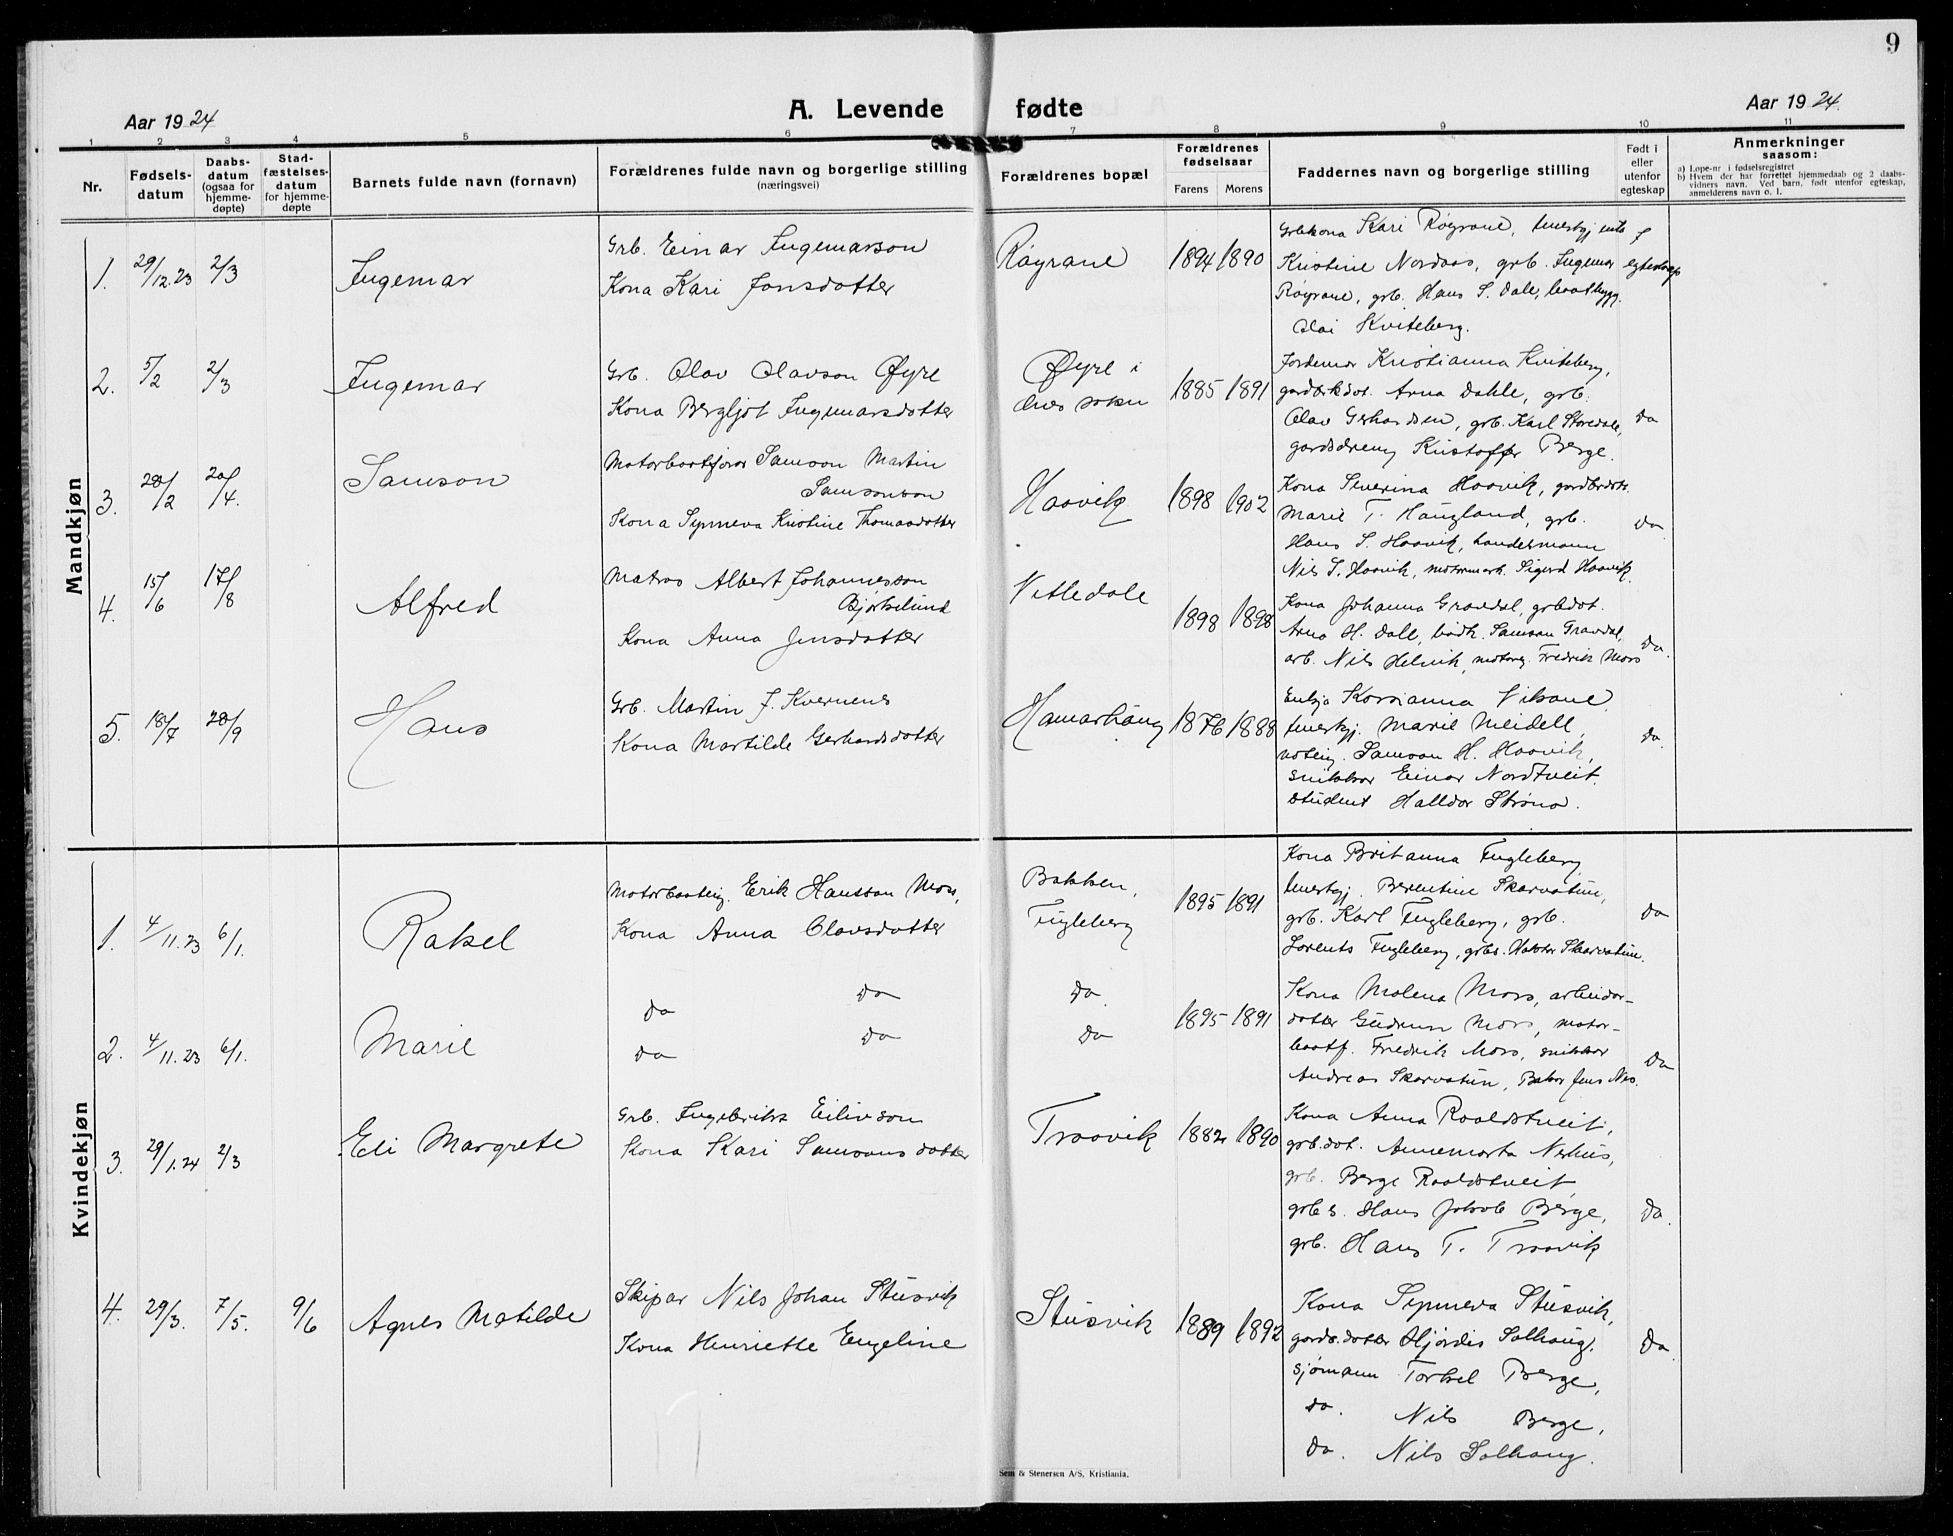 9
Aar 1924
A. Levende fødte
Aar 1924.
1 2 3 4 5 6 7 8 9 10 11
Nr.
Fødsels-
datum
Daabs-
datum
(ogsaa for
hjemme-
døpte)
Stad-
fæstelses-
datum
for hjemme-
døpte
Barnets fulde navn (fornavn)
Forældrenes fulde navn og borgerlige stilling
(næringsvei)
Forældrenes bopæl
Forældrenes
fødselsaar
Farens Morens
Faddernes navn og borgerlige stilling
Født i
eller
utenfor
egteskap
Anmerkninger
saasom:
a) Løpe-nr i fødselsregistret
b) Hvem der har forrettet hjemmedaab og 2 daabs-
vidners navn. Ved barn, født utenfor egteskap,
anmelderens navn o. l.
Mandkjøn
1. 29/12.23 2/3 Ingemar
Grb. Einar Ingemarson
Kona Kari Jonsdotter
Røyrane 1894 1890
Grbkona Kari Røyrane,
Kristine Nordaas, grb. Ingemar
Røyrane, grb. Hans S. Dale, baatbygg.
Olai Kviteberg.
I
egteskap
2. 5/2 2/3 Ingemar
Grb. Olav Olavson Øyre
Kona Bergljot Ingemarsdotter
Øyre i
sokn 1885 1891
Jordemor Kristianna Kviteberg,
Arna Dahle, grb.
Olav Gerhardsen, grb. Karl Storedale,
gardsdreng Kristoffer Berge.
Do
3. 28/2 20/4. Samson
Motorbaatfører Samson Martin
Samsonson
Kona Synneva Kristine Thomasdotter
Haavik 1898 1902
Kona Severina Haavik,
Marie T. Haugland, grb.
Hans S. Haavik, handelsmann
Nils S. Haavik, Sigurd Haavik.
Do
4. 15/6 17/8 Alfred
Matros Albert Johannesson
Bjørkelund
Kona Anna Jensdotter
Vetledale 1898 1898
Kona Johanna Gravdal, grbdot.
Arna H. Dale, Samson Gravdal,
arb. Nils Helvik, Fredrik Moss
Do.
5. 18/7 28/9 Hans
Grb. Martin J. Kvernenes
Kona Martilde Gerhardsdotter
Hamarhaug 1876 1888
Enkja Korsianna Viksane,
tenestgj. Marie Meidell,
Samson H. Haavik,
snikkar Einar Nordtveit.
student Halldor Strønø.
Do.
Kvindekjøn
1. 4/11.23 6/1. Rakel
Motorbaateig. Erik Hansson Moss,
Kona Anna Olavsdotter
Bakken,
Fugleberg 1895 1891
Kona Britanna Fugleberg
tenestgj. Berentine Skarvatun,
grb. Karl Fugleberg, grb.
Lorents Fugleberg, grbs. Skarvatun.
Do
2. 4/11.23 6/1. Marie
Do Do
Do Do
Do
Do 1895 1891
Kona Malena Moss, arbeidar-
dotter Gudrun Moss, motor-
baatf. Fredrik Moss, snikkar
Andreas Skarvatun, Bakar Jens Nes.
Do
3. 29/1.24 2/3 Eli Margrete
Grb. Ingebrikt Eilivson
Kona Kari Samsonsdotter
Traavik 1882 1890
Kona Anna Raaldstveit,
grb.dot. Annemarta Nerhus,
grb. Berge Raaldstveit,
grbs. Hans Jakob Berge,
grb. Hans T. Traavik
Do.
4. 29/3. 7/5. 9/6 Agnes Matilde
Skipar Nils Johan Stusvik
Kona Henriette Engeline
Stusvik 1889 1892
Kona Synneva Stusvik,
gards.dotter Hjørdis Solhaug,
sjømann Torkel Berge,
do. Nils Berge,
Do. Nils Solhaug.
Do
Sem & Stenersen A/S, Kristiania.